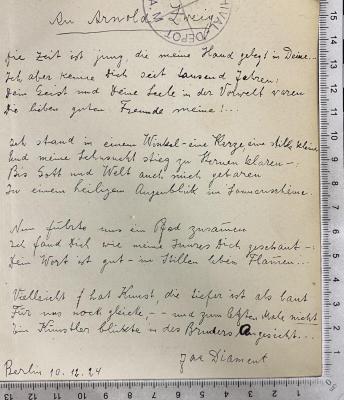 An Arnold Zweig
Die Zeit ist jung, die meine Hand gelegt in Deine...
Ich aber kenne Dich seit tausend Jahren:
Dein Geist und Deine Seele in der Vorwelt waren
Die lieben guten Freunde meine!...
Ich stand in einem Winkel - eine Kerze, eine still, kleine
Und meine Sehnsucht stieg zu Sternen klaren -,
Bis Gott und Welt auch mich geboren
In einem heiligen Augenblick im Sonnenscheine.
Nun führte uns ein Pfad zusammen
Ich fand Dich wie meine Inneres Dich geschaut -.
Dein Wort ist gut - im Stillen leben Flammen...
Vielleicht hat Kunst, die tiefer ist als laut
Für uns noch gleiche, -- und zum letzten Male nicht
Ein Künstler blickte in des Bruders Angesicht...
Jac Diament
Berlin 10.12.24